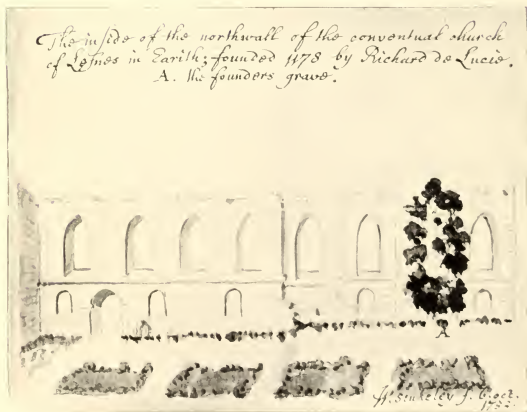 The inside of the northwall of the conventual church
of Lesnes in Earith; founded 1178 by Richard de Lucie.
A. the founders grave.
A
W. Stukeley f. 6. oct.